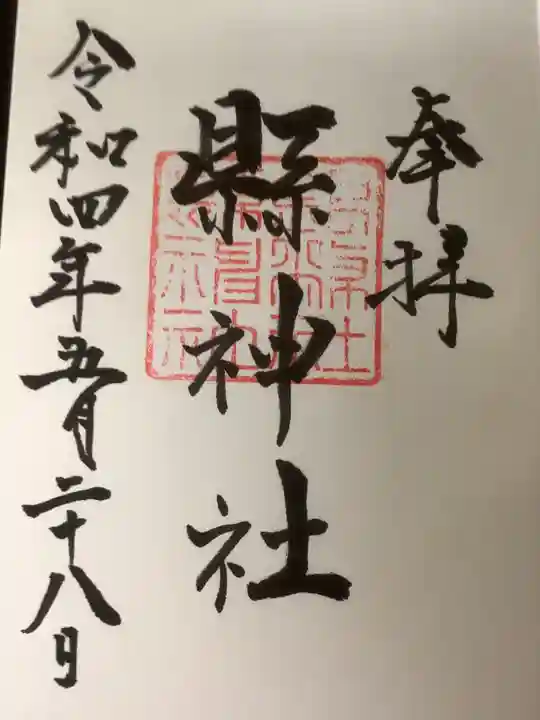 奉拝
縣神社
令和四年五月二十八日